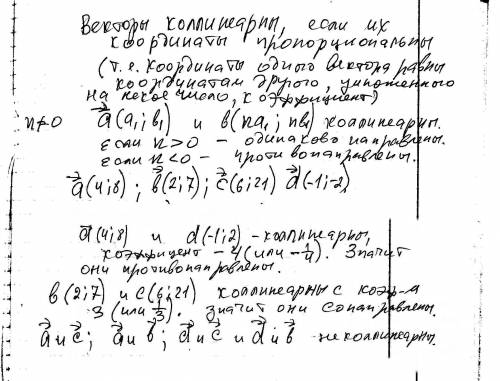 Векторы коллинеарны, если их
координаты пропорциональны
(т.е. координаты одного вектора равны
координатам другого, умноженного
на некое число, коэффициент)
n≠0 a⃗(a₁; в₁) и в(na₁; nв₁) коллинеарны.
если n>0 – одинаково направлены.
если n<0 – противонаправлены.
a⃗(4;8); в⃗(2;7); c⃗(6;21) d⃗(-1;-2)
a⃗(4;8) и d(-1;2) – коллинеарны,
коэффицент – 4 (или -1/4). Значит
они противонаправлены.
в(2;7) и c(6;21) коллинеарны с коэф-м
3 (или 1/3). Значит они сонаправлены.
a⃗ и c⃗; a⃗ и в⃗; d⃗ и c⃗ и d⃗ и в⃗ не коллинеарны.